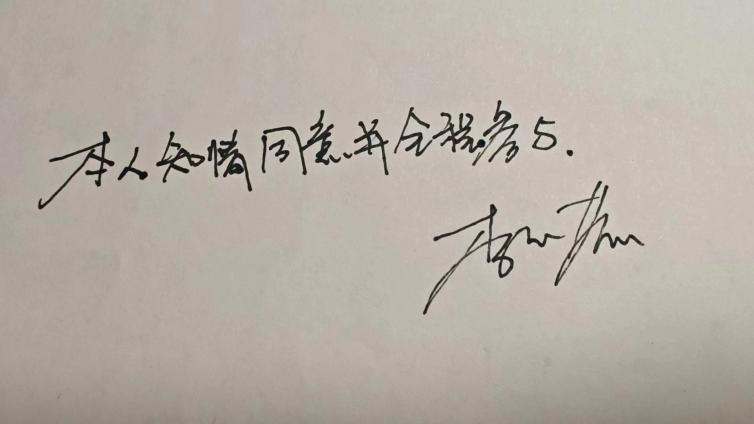 本人知情同意并全程参与.